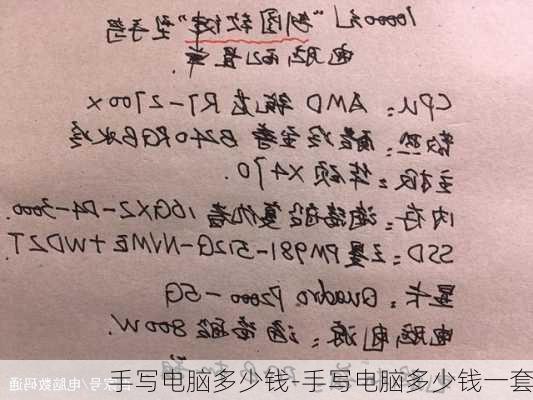 10000元"制图软件"型手写
电脑配置单
CPU：AMD 锐龙 R7-2700X
散热：酷冷至尊 B240 RGB水冷
主板：华硕 X470.
内存：海盗船复仇者 16GX2-D4-3000.
SSD：三星PM981-512G-NVME+WD2T
显卡：Quadro P2000-5G
电源：海盗船 800W.
众号/电脑数码通
手写电脑多少钱-手写电脑多少钱一套